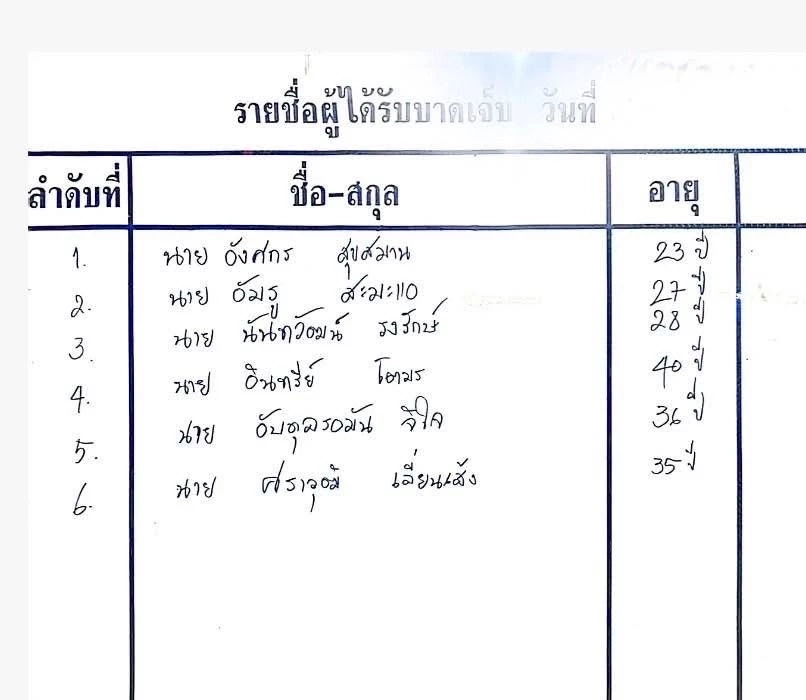 รายชื่อผู้ได้รับบาดเจ็บ วันที่
ลำดับที่ ชื่อ-สกุล อายุ
1. นาย อังศกร สุขสมาน 23 ปี
2. นาย อัมรู สะมะแอ 27 ปี
3. นาย นันทวัฒน์ รงรักษ์ 28 ปี
4. นาย อินทรีย์ โตมร 40 ปี
5. นาย อับดุลรอมัน จิใจ 36 ปี
6. นาย ศราวุฒิ เลี่ยนเส้ง 35 ปี